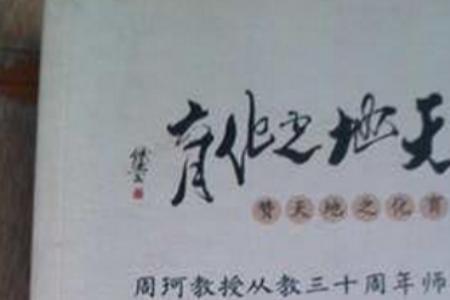 天地之化育
赞天地之化育
周珂教授从教三十周年师